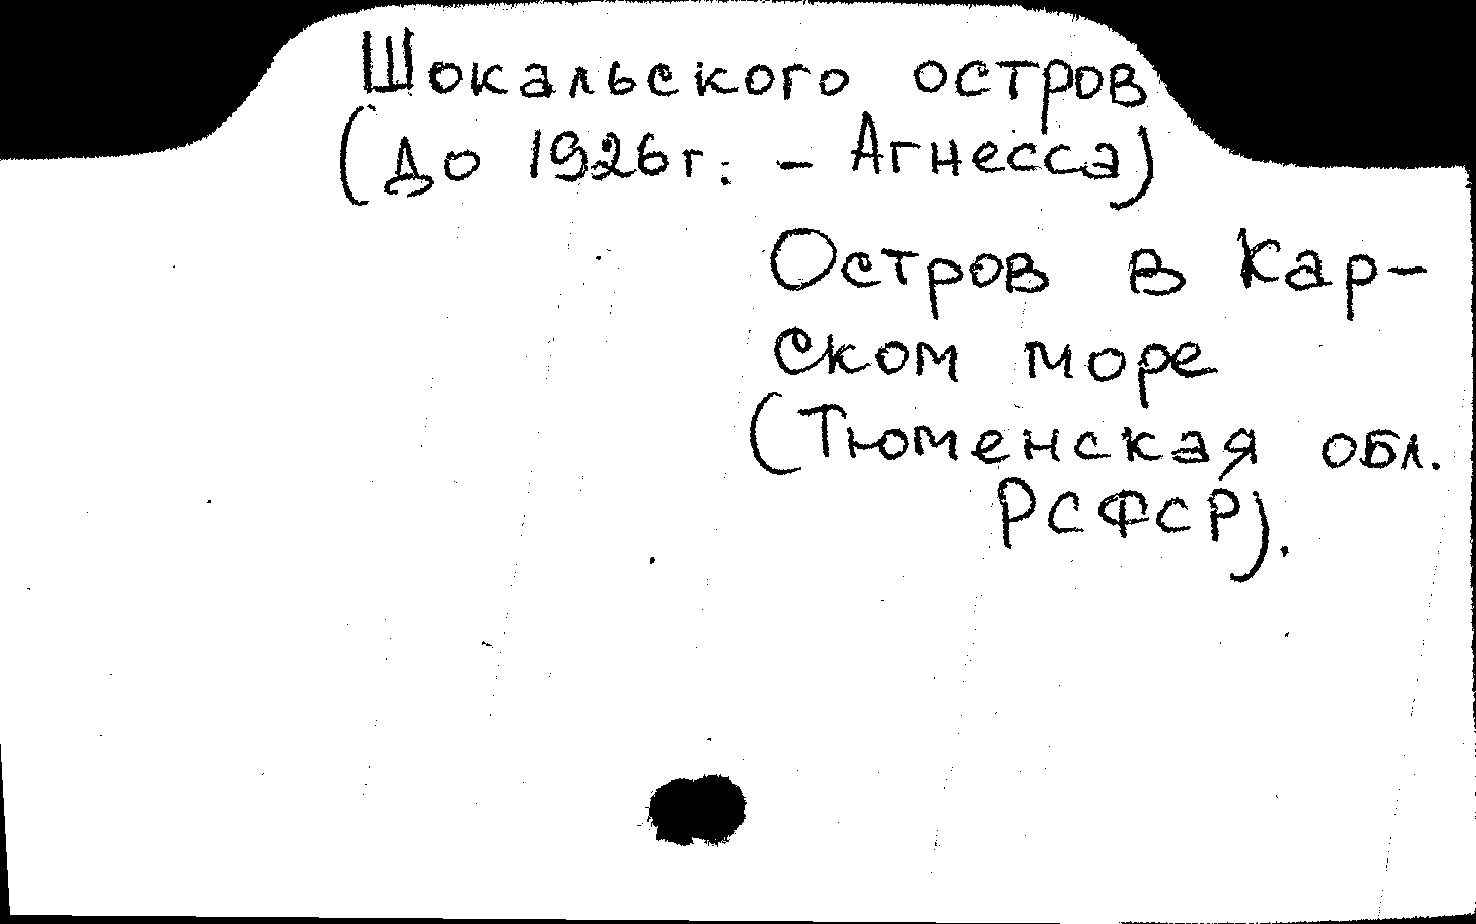 Шокальского остров
(до 1926 г. - Агнесса)
Остров в Кар-
ском море
(Тюменская обл.
РСФСР).